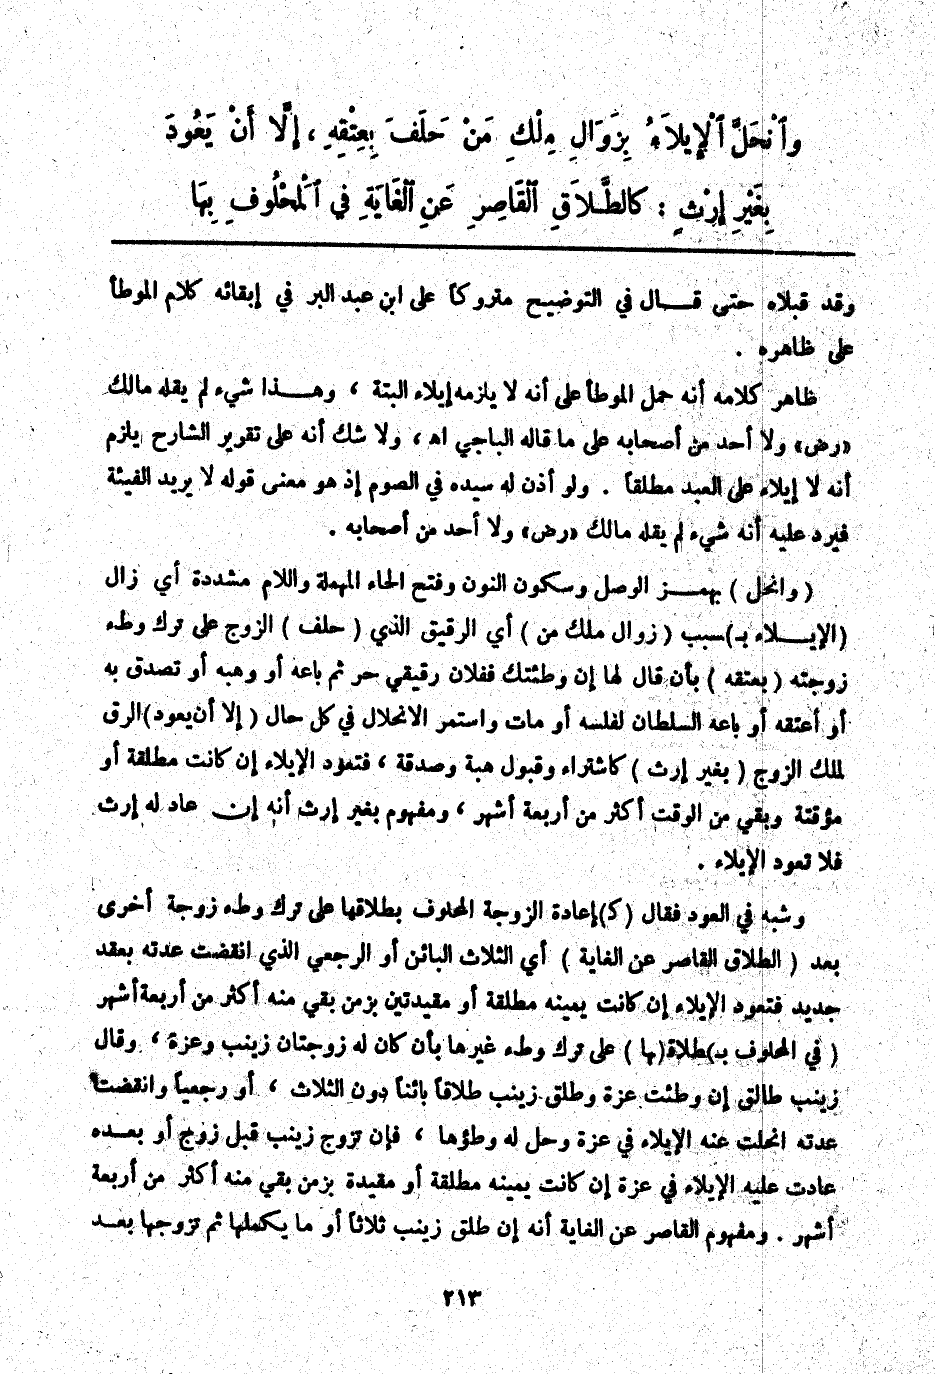 وَٱنْحَلَّ ٱلْإِيلَاءُ بِزَوَالِ مِلْكِ مَنْ حَلَفَ بِعِتْقِهِ ، إِلَّا أَنْ يَعُودَ
بِغَيْرِ إِرْثٍ : كَالطَّلَاقِ ٱلْقَاصِرِ عَنِ ٱلْغَايَةِ فِي ٱلْمَحْلُوفِ بِهَا
وقد قبلاه حتى قال في التوضيح متروكاً على ابن عبد البر في إبقائه كلام الموطأ
على ظاهره .
ظاهر كلامه أنه حمل الموطأ على أنه لا يلزمه إيلاء البتة ، وهذا شيء لم يقله مالك
«رض» ولا أحد من أصحابه على ما قاله الباجي اه ، ولا شك أنه على تقرير الشارح يلزم
أنه لا إيلاء على العبد مطلقاً . ولو أذن له سيده في الصوم إذ هو معنى قوله لا يريد الفيئة
فيرد عليه أنه شيء لم يقله مالك «رض» ولا أحد من أصحابه .
( وانحل ) بهمز الوصل وسكون النون وفتح الحاء المهملة واللام مشددة أي زال
(الإيلاء بـ)سبب ( زوال ملك من ) أي الرقيق الذي ( حلف ) الزوج على ترك وطء
زوجته ( بعتقه ) بأن قال لها إن وطئتك ففلان رقيقي حر ثم باعه أو وهبه أو تصدق به
أو أعتقه أو باعه السلطان لفلسه أو مات واستمر الانحلال في كل حال ( إلا أن يعود)الرق
لملك الزوج ( بغير إرث ) كاشتراء وقبول هبة وصدقة ، فتعود الإيلاء إن كانت مطلقة أو
مؤقتة وبقي من الوقت أكثر من أربعة أشهر ، ومفهوم بغير إرث أنه إن عاد له إرث
فلا تعود الإيلاء .
وشبه في العود فقال ( كـ)إعادة الزوجة المحلوف بطلاقها على ترك وطء زوجة أخرى
بعد ( الطلاق القاصر عن الغاية ) أي الثلاث البائن أو الرجعي الذي انقضت عدته بعقد
جديد فتعود الإيلاء إن كانت يمينه مطلقة أو مقيدتين بزمن بقي منه أكثر من أربعة أشهر
( في المحلوف بـ)طلاق(ها ) على ترك وطء غيرها بأن كان له زوجتان زينب وعزة ، وقال
زينب طالق إن وطئت عزة وطلق زينب طلاقاً بائناً دون الثلاث ، أو رجعياً وانقضت
عدته انحلت عنه الإيلاء في عزة وحل له وطؤها ، فإن تزوج زينب قبل زوج أو بعده
عادت عليه الإيلاء في عزة إن كانت يمينه مطلقة أو مقيدة بزمن بقي منه أكثر من أربعة
أشهر . ومفهوم القاصر عن الغاية أنه إن طلق زينب ثلاثاً أو ما يكملها ثم تزوجها بعد
٢١٣